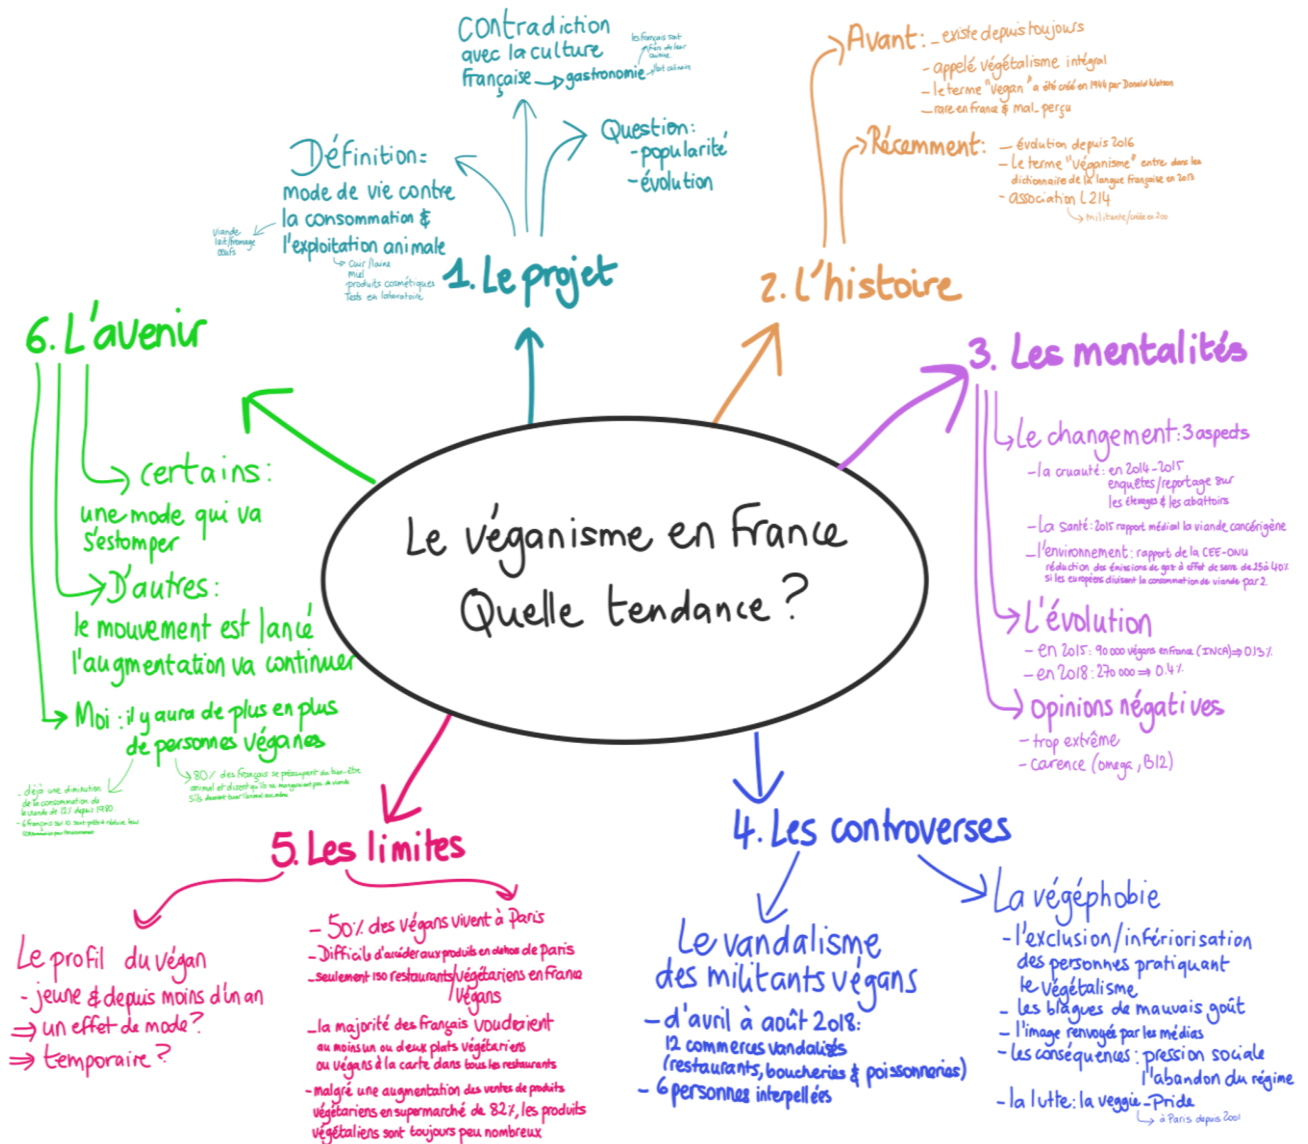 Le véganisme en France
Quelle tendance ?
1. Le projet
Définition =
mode de vie contre
la consommation &
l'exploitation animale
viande
lait/fromage
œufs
Cuir/laine
Miel
produits cosmétiques
Tests en laboratoire
contradiction
avec la culture
Française → gastronomie
les français sont
fiers de leur
cuisine
l'art culinaire
Question:
- popularité
- évolution
2. L'histoire
Avant: - existe depuis toujours
- appelé végétalisme intégral
- le terme "vegan" a été créé en 1944 par Donald Watson
- rare en France & mal-perçu
Récemment: - évolution depuis 2016
- Le terme "véganisme" entre dans les
dictionnaire de la langue française en 2013
- association L214
militante/créée en 200
3. Les mentalités
Le changement: 3 aspects
- la cruauté: en 2014-2015
enquêtes/reportage sur
les élevages & les abattoirs
- La santé: 2015 rapport médial la viande cancérigène
- l'environnement: rapport de la CEE-ONU
réduction des émissions de gaz à effet de serre de 25 à 40%
si les européens divisent la consommation de viande par 2.
L'évolution
- en 2015: 90 000 végans en France (INCA) ⇒ 0.13%
- en 2018: 270 000 ⇒ 0.4%
opinions négatives
- trop extrême
- carence (omega, B12)
4. Les controverses
Le vandalisme
des militants végans
- d'avril à août 2018:
12 commerces vandalisés
(restaurants, boucheries & poissonneries)
- 6 personnes interpellées
La végéphobie
- l'exclusion/infériorisation
des personnes pratiquant
le végétalisme
- les blagues de mauvais goût
- l'image renvoyé par les médias
- les conséquences: pression sociale
l'abandon du régime
- la lutte: la veggie-Pride
à Paris depuis 2001
5. Les limites
Le profil du végan
- jeune & depuis moins d'un an
⇒ un effet de mode?
⇒ temporaire?
- 50% des végans vivent à Paris
- Difficile d'accéder aux produits en dehors de Paris
- seulement 150 restaurants/végétariens en France
végans
- la majorité des français voudraient
au moins un ou deux plats végétariens
ou végans à la carte dans tous les restaurants
- malgré une augmentation des ventes de produits
végétariens en supermarché de 82%, les produits
végétaliens sont toujours peu nombreux
6. L'avenir
certains:
une mode qui va
s'estomper
D'autres:
le mouvement est lancé
l'augmentation va continuer
Moi: il y aura de plus en plus
de personnes véganes
- déjà une diminution
de la consommation de
la viande de 12% depuis 1980
- 6 français sur 10 sont prêts à réduire leur
80% des français se préoccupent du bien-être
animal et disent qu'ils ne mangeraient pas de viande
s'ils devaient tuer l'animal eux-mêmes